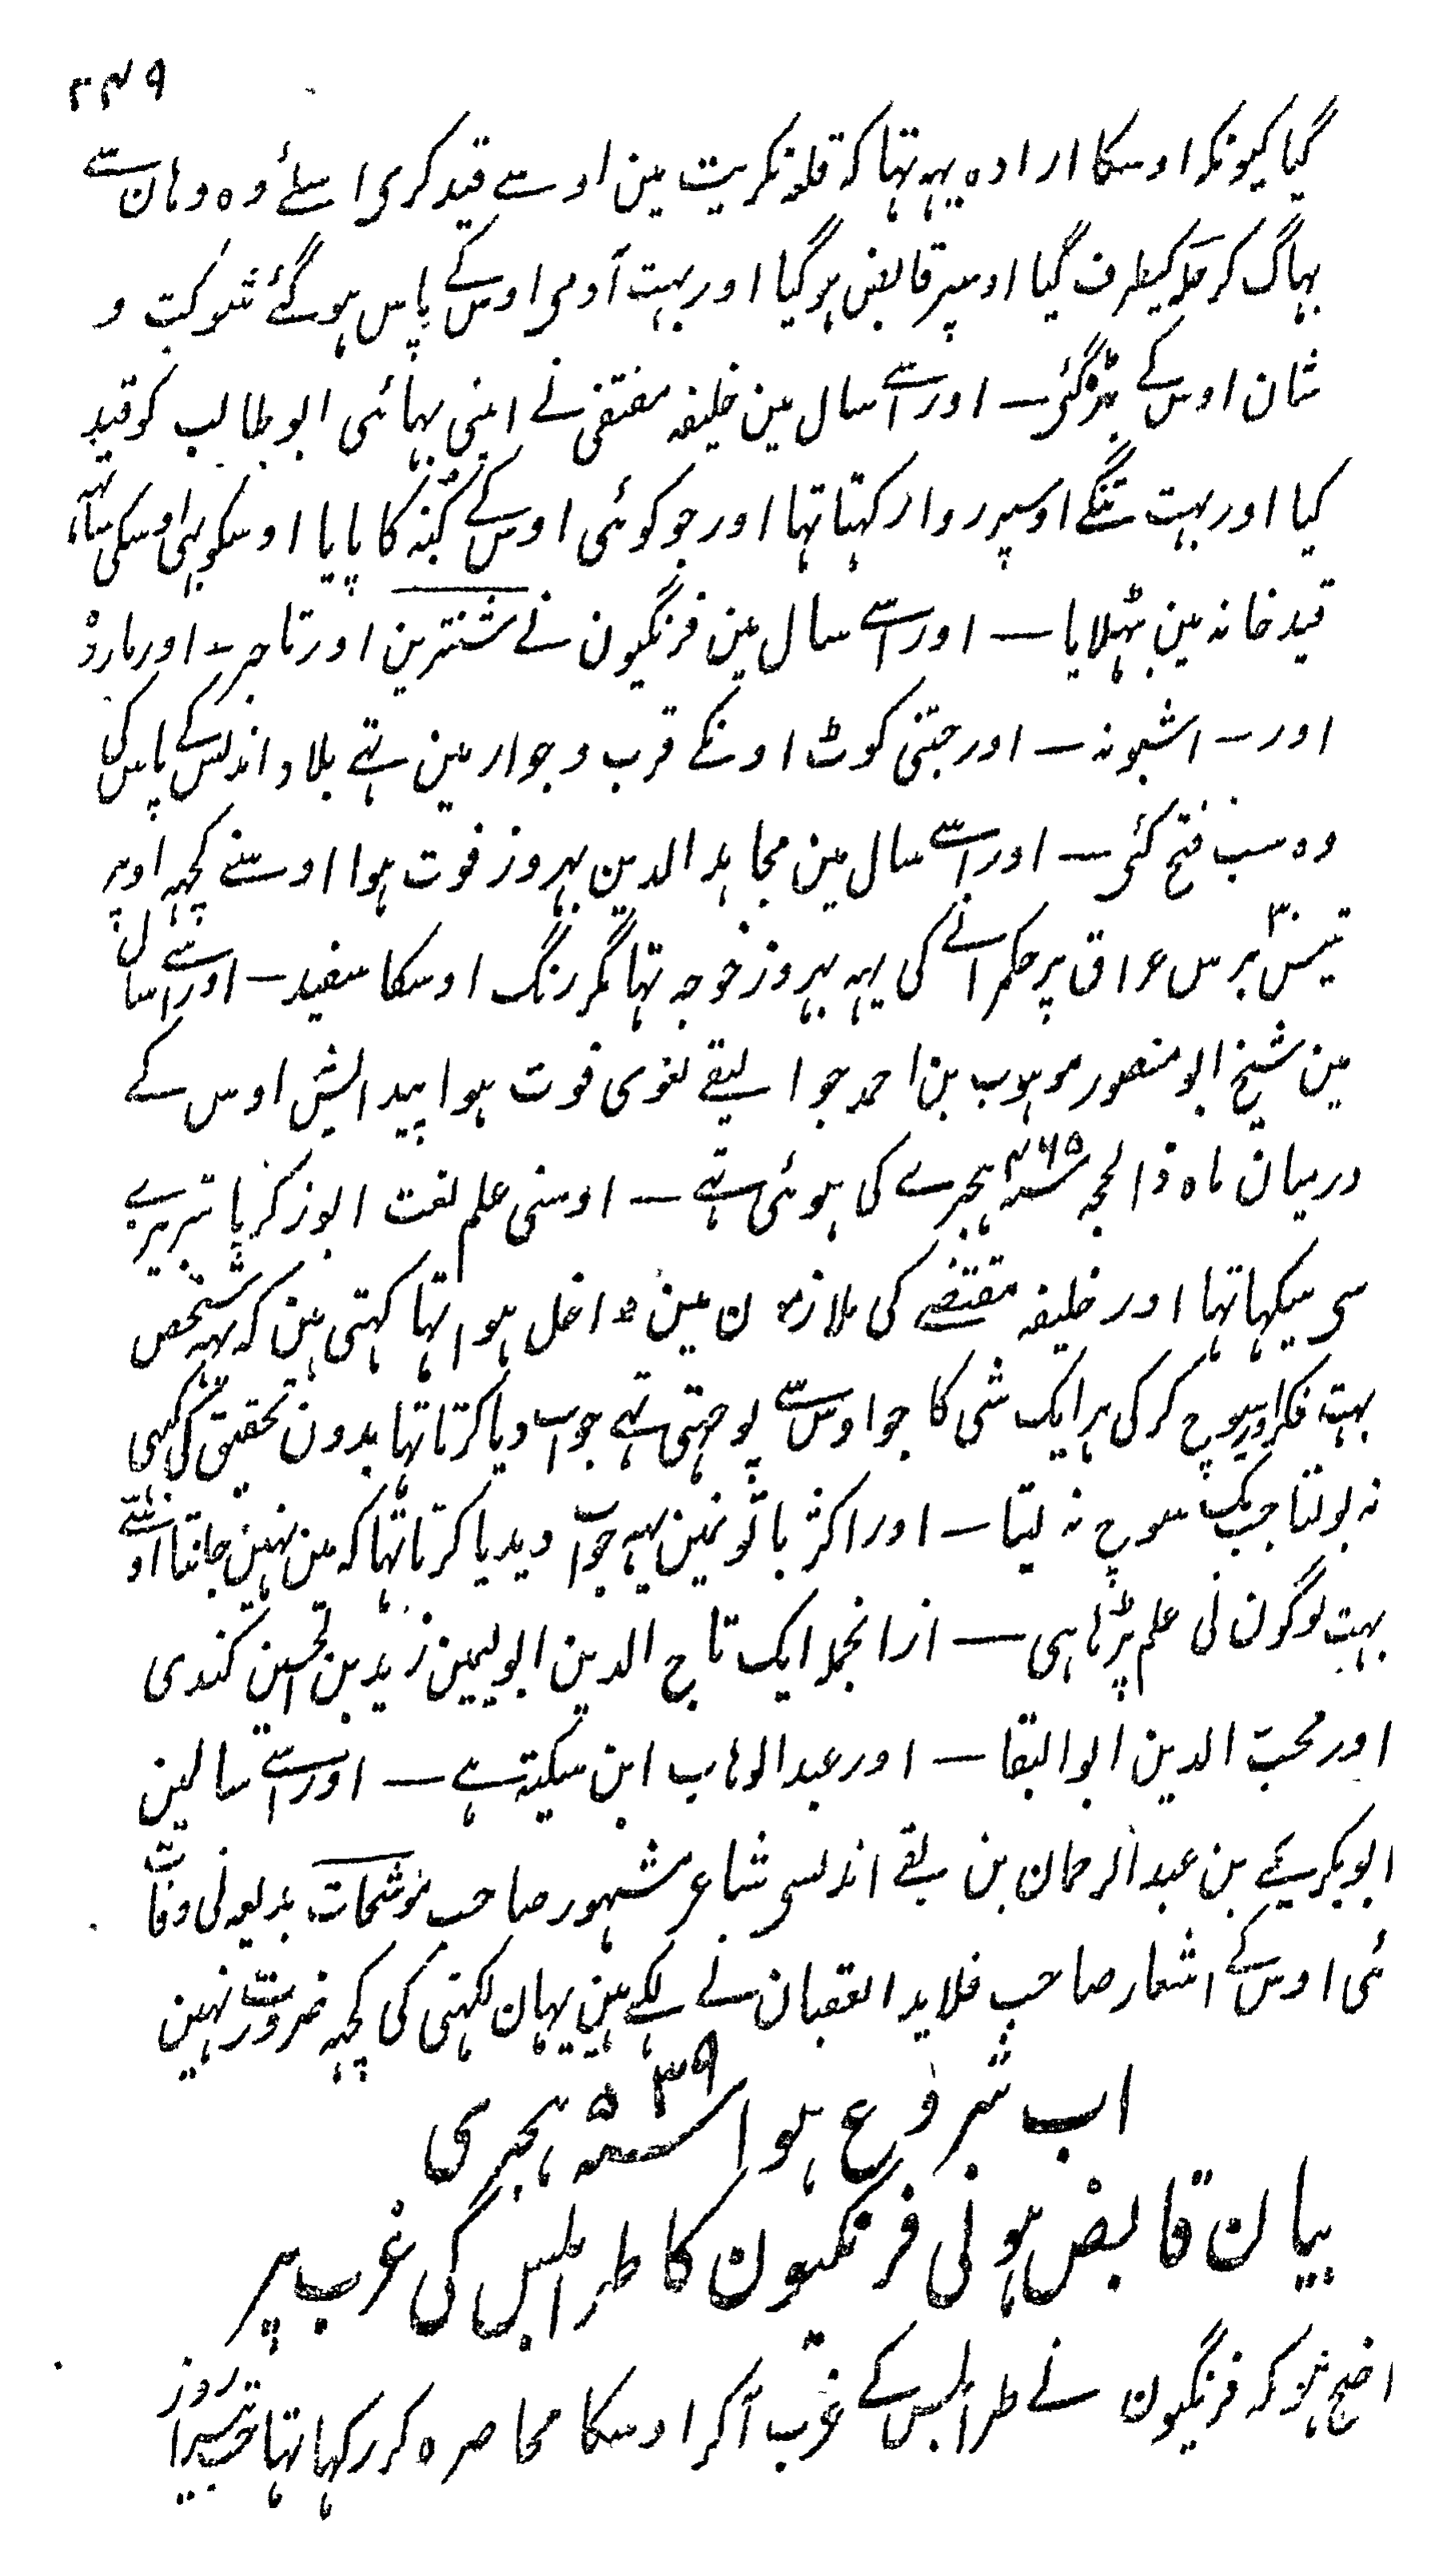 ۲۴۹
گیا کیونکہ اوسکا ارادہ یہہ تہا کہ قلعہ تکریت مین اوسے قید کری اسلئے وہ وہان سے
بہاگ کر حلہ کیطرف گیا اوسپر قابض ہوگیا اور بہت آدمی اوس کے پاس ہوگئے شوکت و
شان اوس کے بڑہ گئی ـ اور اسے سال مین خلیفہ مقتفی نے اپنی بہائی ابو طالب کو قید
کیا اور بہت تنگے اوسپر روا رکہتا تہا اور جو کوئی اوس کے کنبہ کا پایا اوسکو بہی اوسکی ساتہہ
قید خانہ مین بٹہلایا ـ اور اسے سال مین فرنگیون نے شنترین اور تاجر ـ اور ماردہ
اور ـ اشبونہ ـ اور جتنی کوٹ اونکے قرب و جوار مین تہے بلاد اندلس کے پاس کی
وہ سب فتح کئی ـ اور اسے سال مین مجاہد الدین بہروز فوت ہوا اوسنے کچہہ اوپر
تیس ۳۰ برس عراق پر حکمرانے کی یہہ بہروز خوجہ تہا مگر رنگ اوسکا سفید ـ اور اسے سال
مین شیخ ابو منصور موہوب بن احمد جوالیقے لغوی فوت ہوا پیدایش اوس کے
درمیان ماہ ذالحجہ سنہ ۴۶۵ ہجرے کی ہوئی تہے ـ اوسنی علم لغت ابوزکریا تبریزے
سی سیکہا تہا اور خلیفہ مقتفے کی ملازمون مین داخل ہوا تہا کہتی ہین کہ یہہ شخص
بہت فکر اور سوچ کر کی ہر ایک شی کا جو اوس سے پوچہتی تہے جواب دیا کرتا تہا بدون تحقیق کی کبہی
نہ بولتا جب تک سوچ نہ لیتا ـ اور اکثر باتونمین یہہ جواب دیدیا کرتا تہا کہ مین نہین جانتا اوس سے
بہت لوگون نی علم پڑہا ہی ـ ازانجملہ ایک تاج الدین ابو الیمین زید بن الحسین کندی
اور محب الدین ابو البقا ـ اور عبد الوہاب ابن سکینہ ہے ـ اور اسے سالمین
ابو بکر یحیے بن عبد الرحمان بن بقے اندلسی شاعر مشہور صاحب موشحات بدیعہ نی وفات
ئی اوس کے اشعار صاحب قلاید العقیان نے لکہے ہین یہان لکہنی کی کچہہ ضرورت نہین
اب شروع ہوا سنہ ۵۳۹ ہجری
بیان قابض ہونی فرنگیون کا طرابلس کی غرب پر
اضح ہو کہ فرنگیون نے طرابلس کے غرب آکر اوسکا محاصرہ کر رکہا تہا جب تیسرا روز